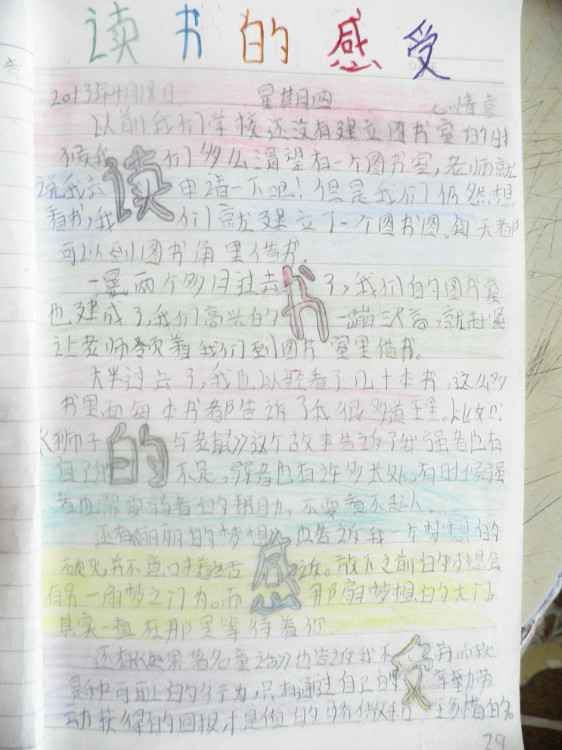 读书的感受
2013年4月18日 星期四 心情喜
以前我们学校还没有建立图书室的时
候我们多么渴望有一个图书室,老师就
说我去申请一下吧!但是我们仍然想
看书,我们就建立了一个图书图。每天都
可以到图书角里借书。
一晃两个多月过去了,我们的图书室
也建成了,我们高兴的一蹦三尺高,就赶紧
让老师领着我们到图书室里借书。
大半过去了,我也以经看了几十本书,这么多
书里面每本书都告诉了我很多道理。比如:
《狮子与老鼠》这个故事告诉了我强者也有
自己的不足,弱者也有许多长处,有时候强
者也需要弱者的帮助,不要看不起人。
还有丽丽的梦想》也告诉我一个梦想的
破灭并不意味着
放下之前的梦想会
有另一扇梦之门为。而那扇梦想的大门
其实一直在那里等待着你。
还有《如果
也告诉我不
是种可耻的行为,只有通过自己的辛勤劳
动获得的回报才是值的骄傲和珍惜的。
读
书
的
感
受
29